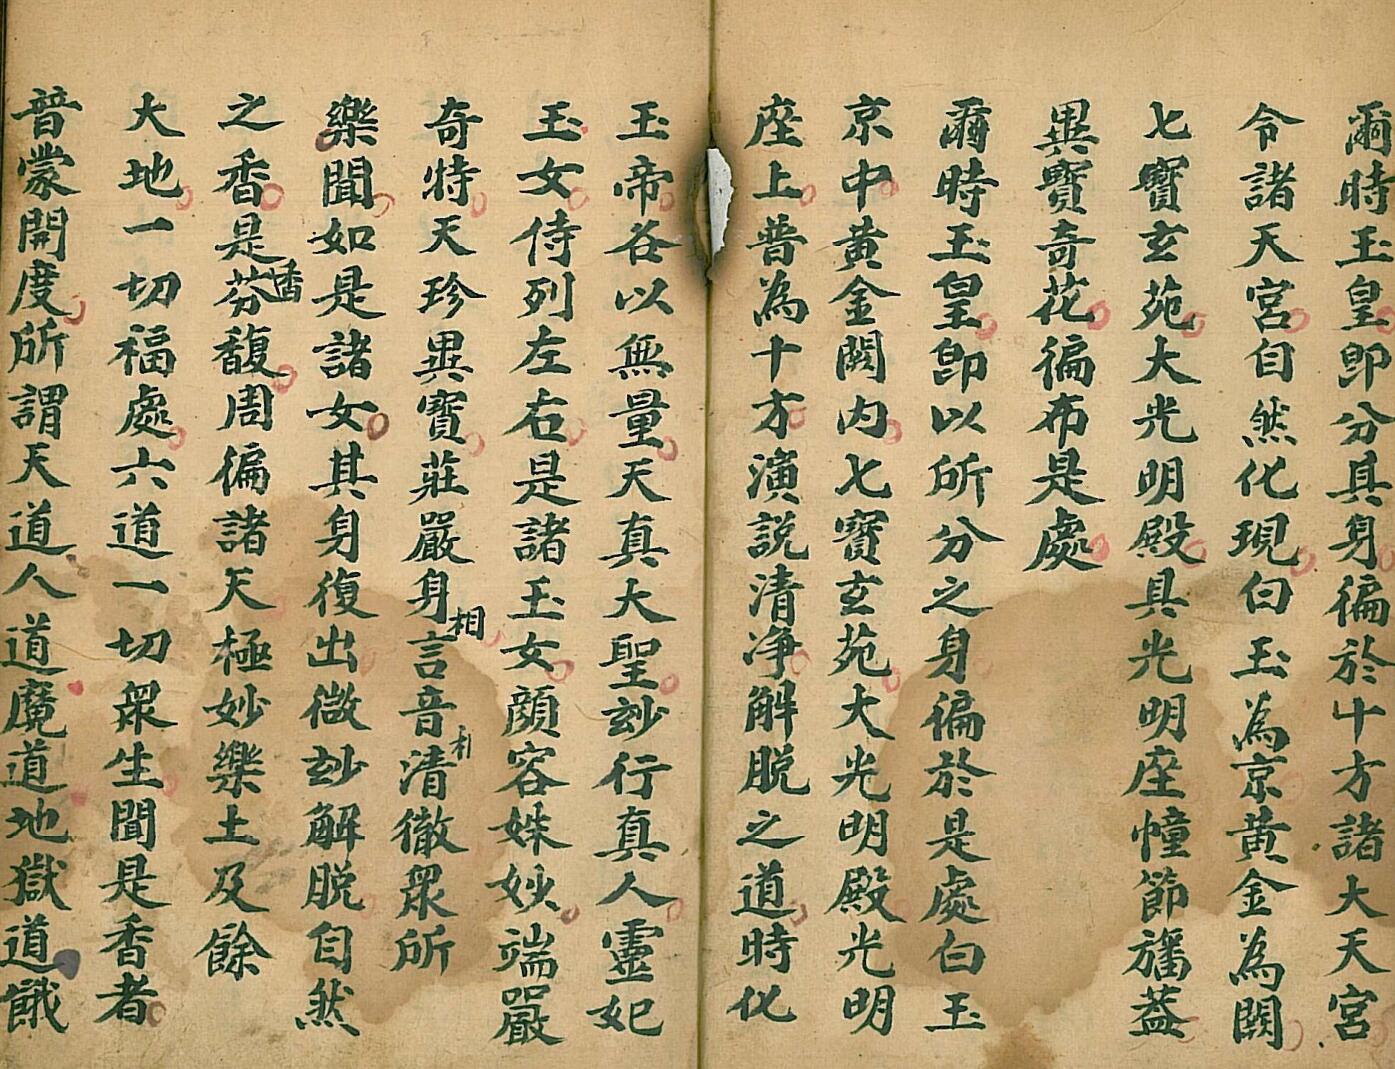 爾時玉皇即分具身徧於十方諸大天宮
令諸天宮自然化現白玉為京黃金為闕
七寶玄苑大光明殿具光明座幢節旛蓋
異寶奇花徧布是處
爾時玉皇即以所分之身徧於是處白玉
京中黃金闕内七寶玄苑大光明殿光明
座上普為十方演說清净解脫之道時化
玉帝各以無量天真大聖玅行真人靈妃
玉女侍列左右是諸玉女顔容姝妙端嚴
奇特天珍異寶莊嚴身相言音清徹衆所
樂聞如是諸女其身復出微玅解脫自然
之香是香芬馥周徧諸天極妙樂土及餘
大地一切福處六道一切衆生聞是香者
普蒙開度所謂天道人道魔道地獄道餓